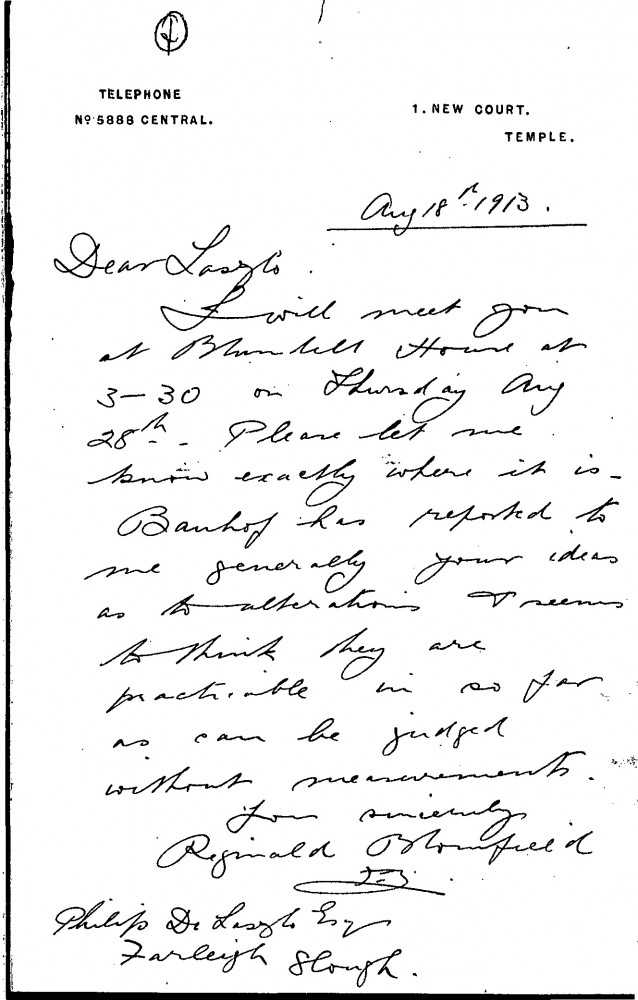 TELEPHONE
Nº 5888 CENTRAL.
1. NEW COURT.
TEMPLE.
Aug 18th 1913.
Dear Laszlo.
I will meet you
at Blundell House at
3-30 on Thursday Aug
28th. Please let me
know exactly where it is -
Banhof has reported to
me generally your ideas
as to alterations & seems
to think they are
practicable in so far
as can be judged
without measurements.
Yours sincerely
Reginald Blomfield
Philip De Laszlo Esq
Farleigh Slough.